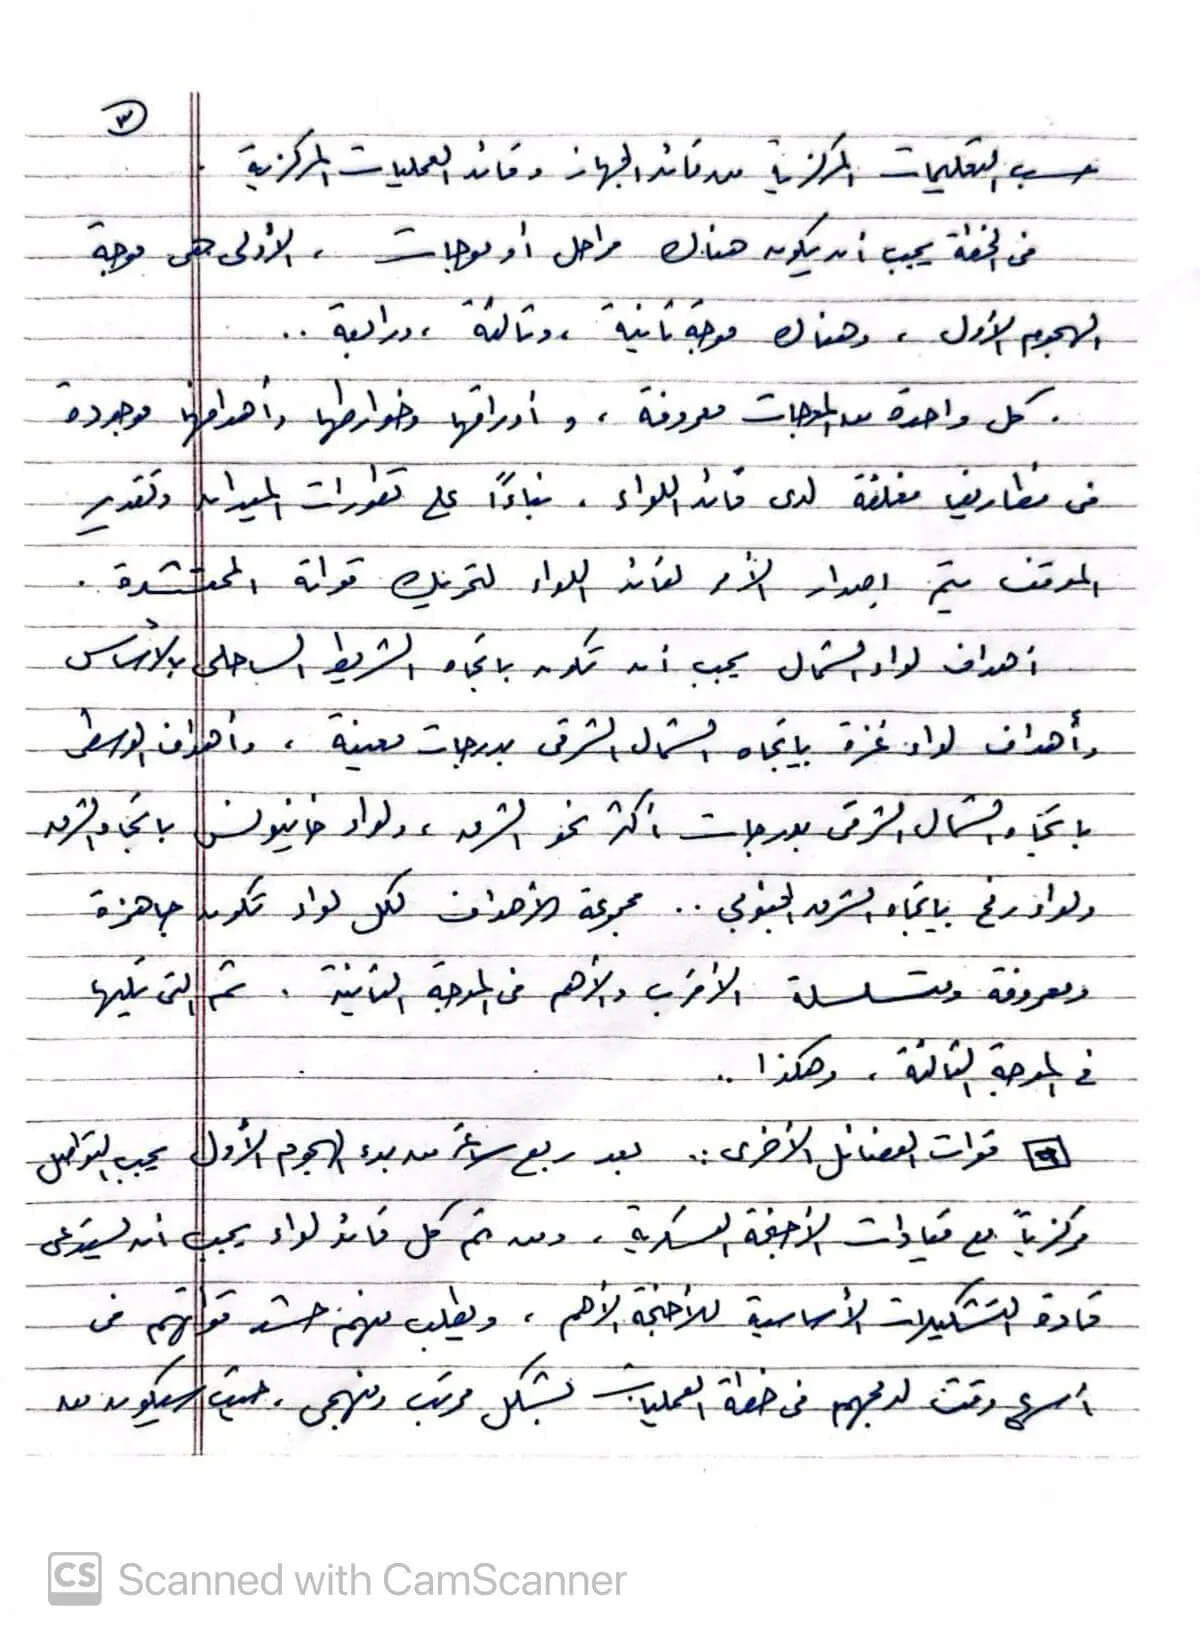 ٣
حسب التعليمات المركزية من قائد الجهاز وقائد العمليات المركزية .
في الخطة يجب أن يكون هناك مراحل أو موجات ، الأولى هي موجة
الهجوم الأول ، وهناك موجة ثانية ، وثالثة ، ورابعة ..
. كل واحدة من الموجات معروفة ، و أوراقها وخوارطها وأهدافها موجودة
في مظاريف مغلقة لدى قائد اللواء . بناءاً على تطورات الميدان وتقدير
الموقف يتم إصدار الأمر لقائد اللواء لتحريك قواته المحتشدة .
أهداف لواء الشمال يجب أن تكون باتجاه الشريط الساحلي بالأساس
وأهداف لواء غزة باتجاه الشمال الشرقي بدرجات معينة ، وأهداف الوسطى
باتجاه الشمال الشرقي بدرجات أكثر نحو الشرق ، ولواء خانيونس باتجاه الشرق
ولواء رفح باتجاه الشرق الجنوبي .. مجموعة الأهداف لكل لواء تكون جاهزة
ومعروفة ومتسلسلة الأقرب والأهم في الموجة الثانية . ثم التي تليها
في الموجة الثالثة ، وهكذا ..
٩ قوات الفصائل الأخرى :. بعد ربع ساعة من بدء الهجوم الأول يجب التواصل
مركزياً مع قيادات الأجنحة العسكرية ، ومن ثم كل قائد لواء يجب أن يستدعي
قادة التشكيلات الأساسية للأجنحة الأهم ، ويطلب منهم حشد قواتهم في
أسرع وقت لدمجهم في خطة العمليات بشكل مرتب ومنهجي ، حيث سيكون من
CS Scanned with CamScanner